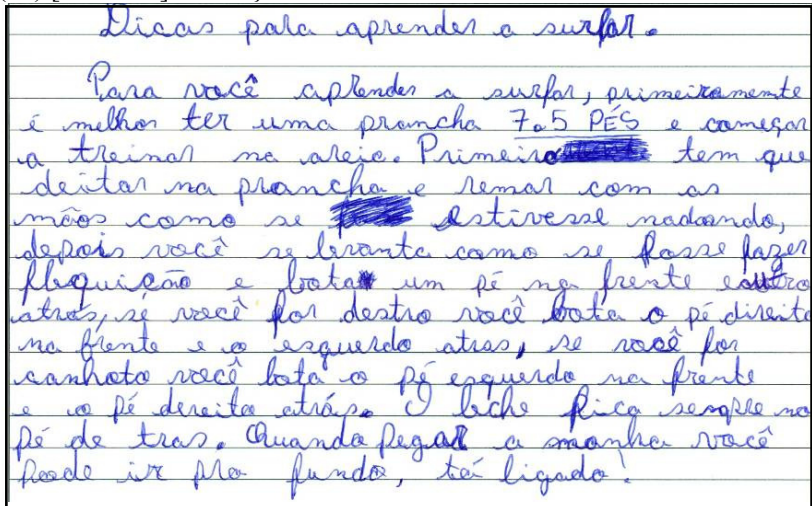 Dicas para aprender a surfar.
Para você aprender a surfar, primeiramente
é melhor ter uma prancha 7.5 PÉS e começar
a treinar na areia. Primeiro tem que
deitar na prancha e remar com as
mãos como se estivesse nadando,
depois você se levanta como se fosse fazer
flequição e bota um pé na frente e outro
atrás, se você for destro você bota o pé direito
na frente e o esquerdo atras, se você for
canhoto você bota o pé esquerdo na frente
e o pé dereito atrás. O leche fica sempre no
pé de tras. Quando pegar a manha você
pode ir pro fundo, tá ligado!